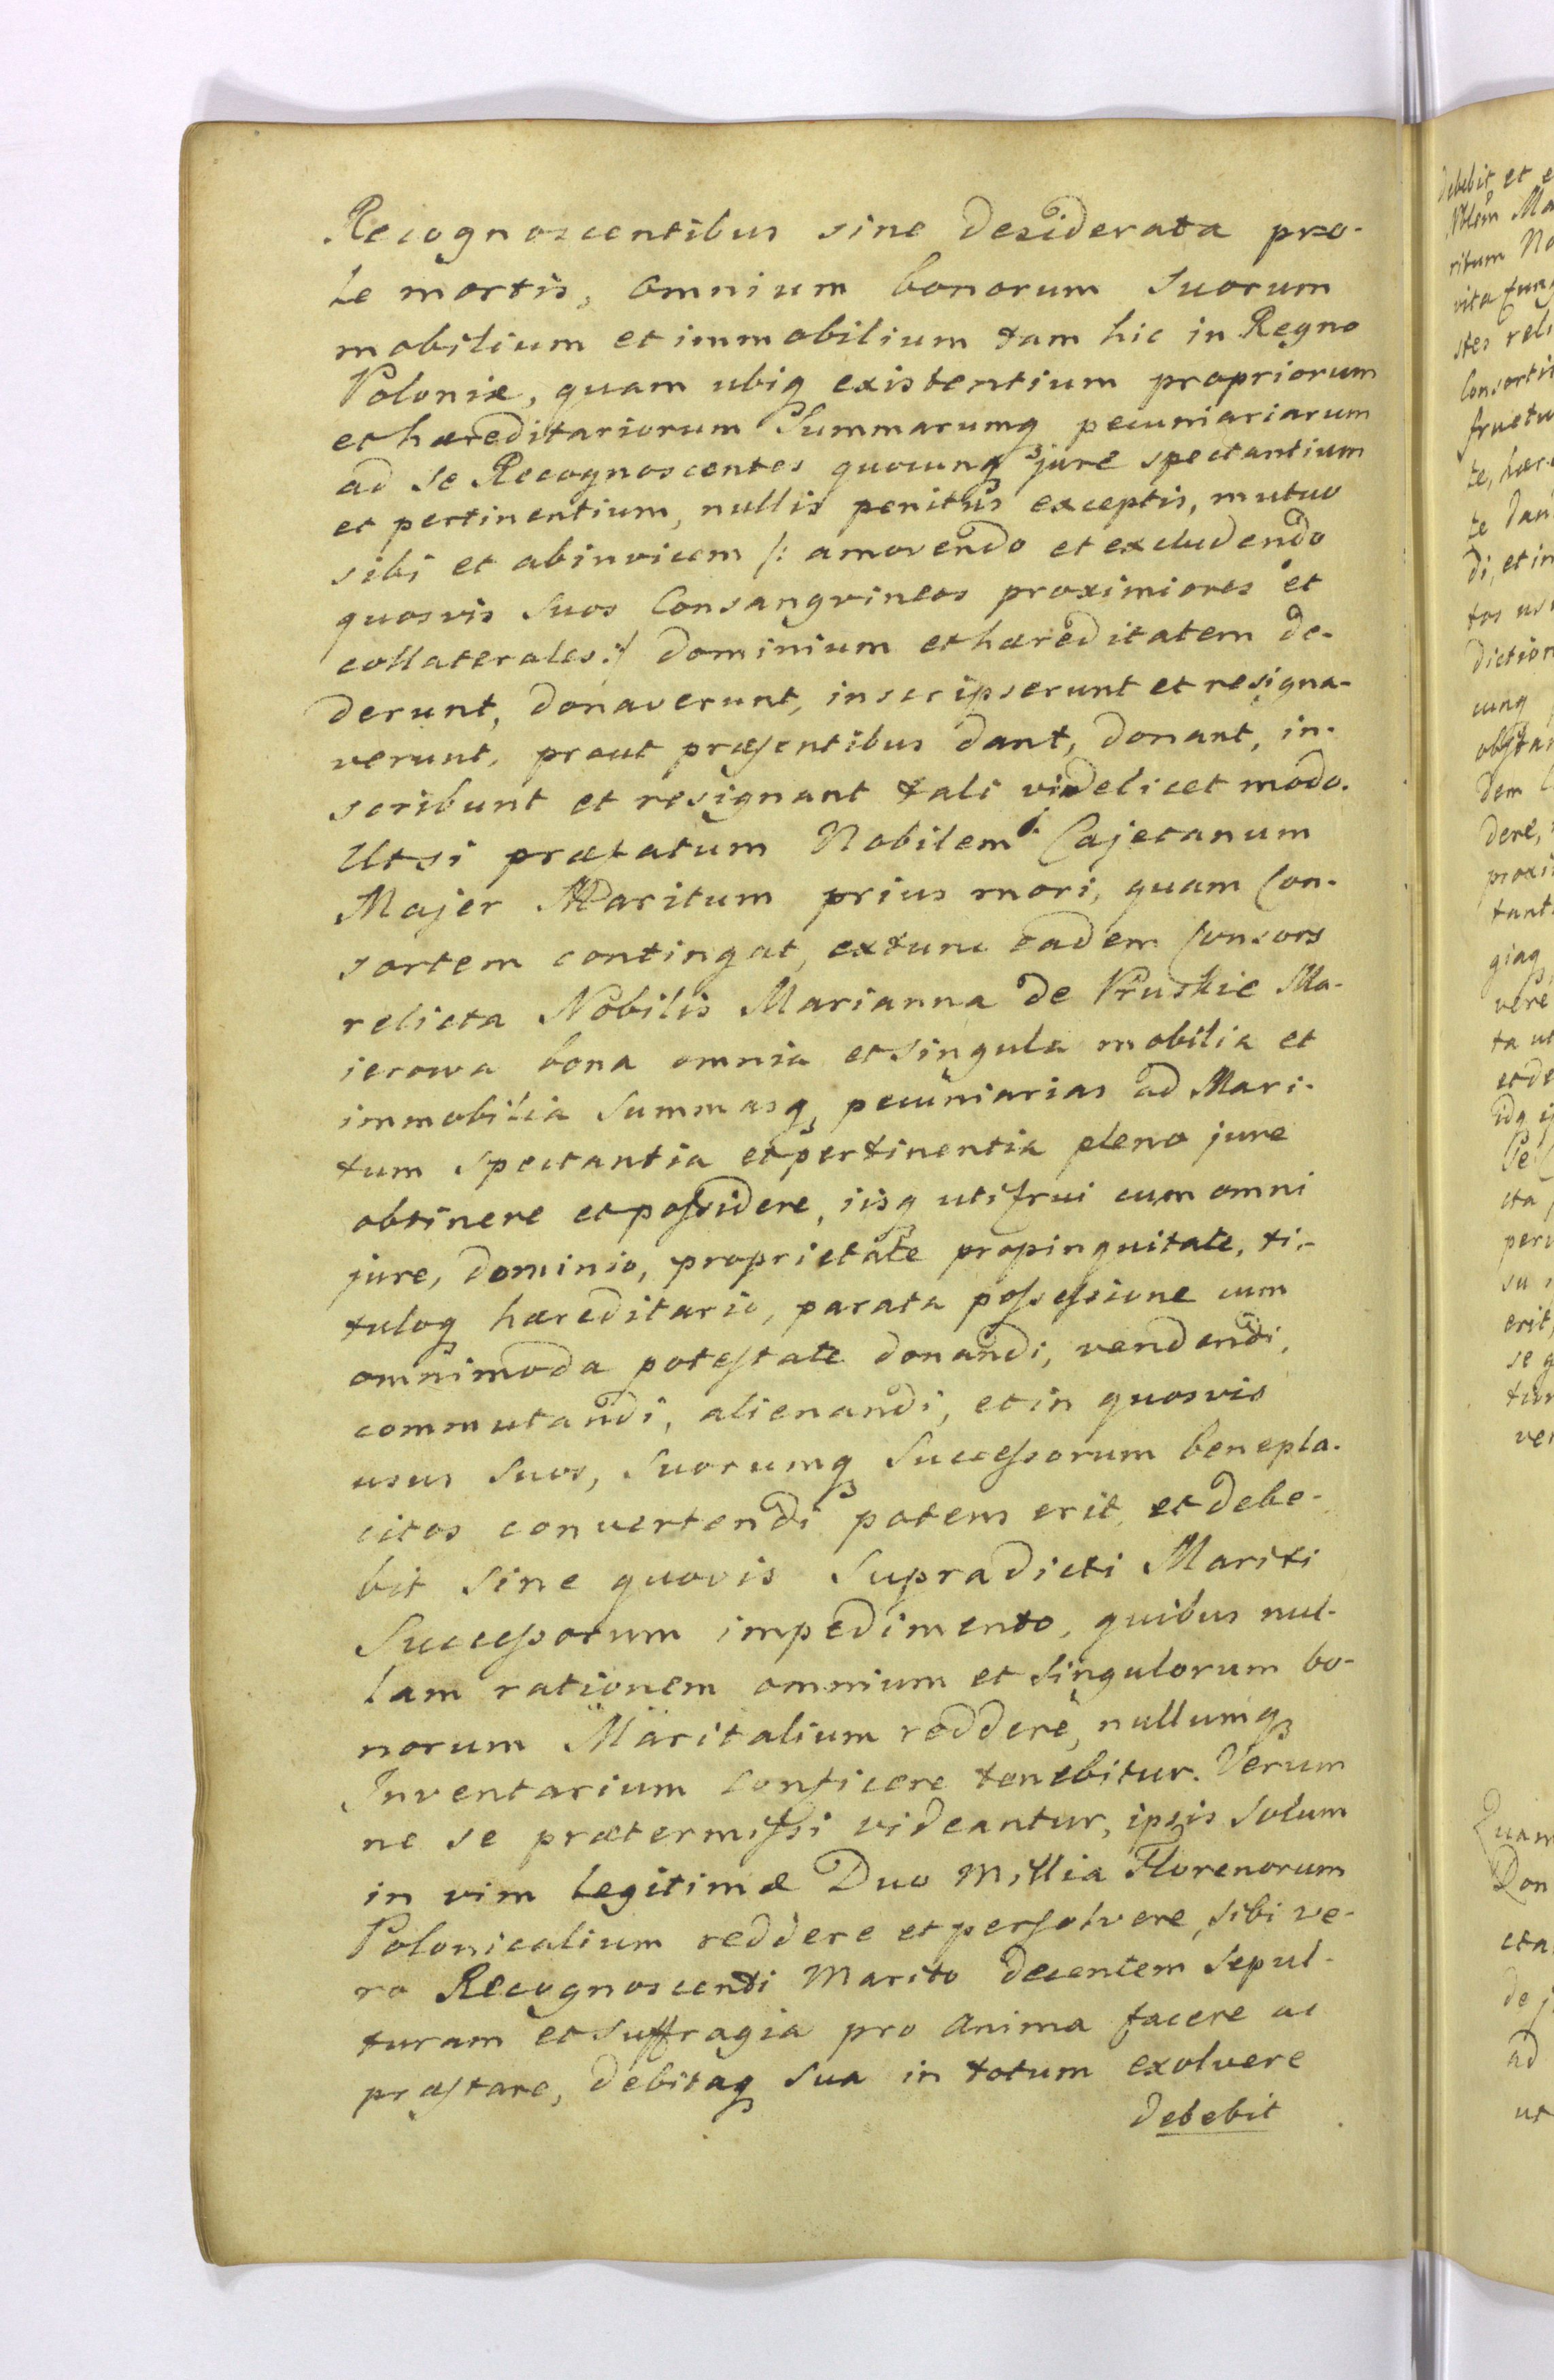 Recognoscentibus sine desiderata pro-
le mortis, omnium bonorum suorum
mobilium et immobilium tam hic in Regno
Poloniæ, quam ubiq existentium propriorum
et hæreditariorum Summarumq pecuniariarum
ad se Recognoscentes quocunq jure spectantium
et pertinentium, nullis penitus exceptis, mutuo
sibi et abinvicem /: amovendo et excludendo
quosvis suos Consangvineos proximiores et
collaterales :/ dominium et hæreditatem de-
derunt, donaverunt, inscripserunt et resigna-
verunt, prout præsentibus dant, donant, in-
scribunt et resignant tali videlicet modo.
Ut si præfatum Nobilem Cajetanum
Majer Maritum prius mori, quam Con-
sortem contingat, extunc eadem Consors
relicta Nobilis Marianna de Pruskie Ma-
ierowa bona omnia et singula mobilia et
immobilia summasq pecuniarias ad Mari-
tum spectantia et pertinentia pleno jure
obtinere et possidere, iisq uti frui cum omni
jure, dominio, proprietate propinquitate, ti-
tuloq hæreditario, parata possessione cum
omnimoda potestate donandi, vendendi,
commutandi, alienandi, et in quosvis
usus suos, suorumq Successorum benepla-
citos convertendi potens erit et debe-
bit sine quovis supradicti Mariti
Successorum impedimento, quibus nul-
lam rationem omnium et singulorum bo-
norum Maritalium reddere, nullumq
Inventarium conficere tenebitur. Verum
ne se prætermissi videantur, ipsis solum
in vim legitimæ Duo Millia Florenorum
Polonicalium reddere et persolvere, sibi ve-
ro Recognoscenti Marito decentem sepul-
turam et suffragia pro anima facere ac
præstare, debitaq sua in totum exolvere
debebit
debebit et e
ritum No
dere,
vere
ad
ut